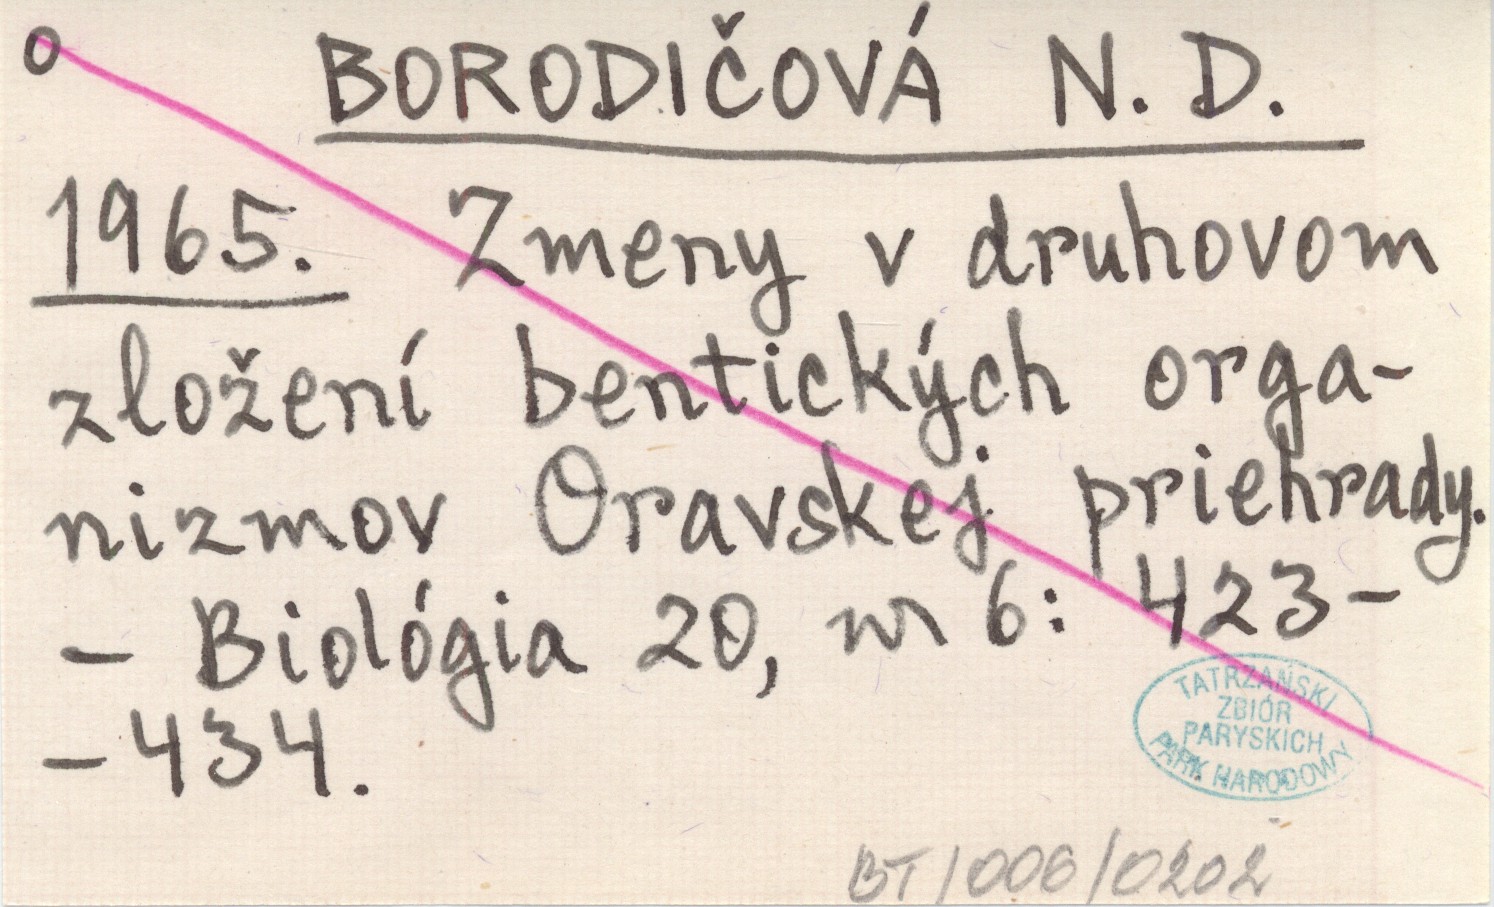 o BORODIČOVÁ N. D.
1965. Zmeny v druhovom
zložení bentických orga-
nizmov Oravskej priehrady.
- Biológia 20, nr 6: 423-
-434.
TATRZAŃSKI
ZBIÓR
PARYSKICH
PARK NARODOWY
BT/006/0202